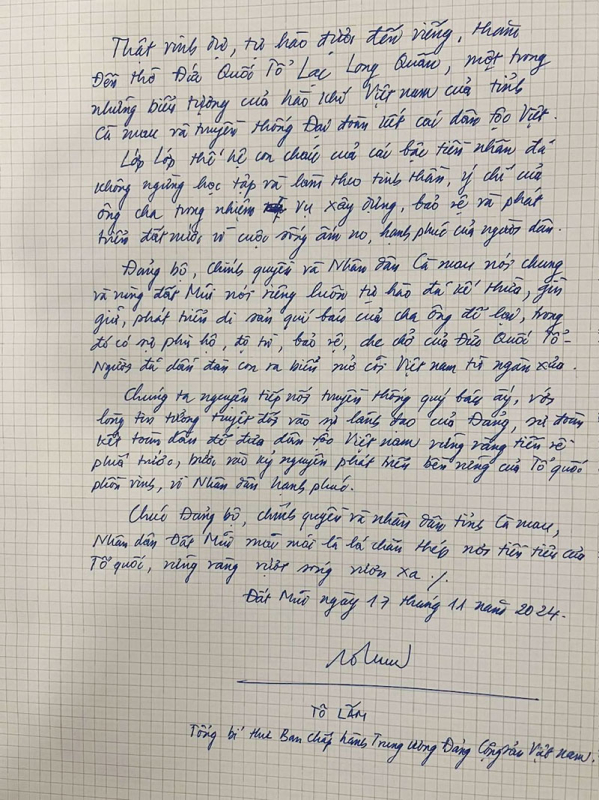 Thật vinh dự, tự hào được đến viếng, thăm
Đền thờ Đức Quốc Tổ Lạc Long Quân, một trong
những biểu tượng của hào khí Việt Nam của tỉnh
Cà Mau và truyền thống Đại đoàn kết các dân tộc Việt.
Lớp Lớp thế hệ con cháu của các bậc tiền nhân đã
không ngừng học tập và làm theo tinh thần, ý chí của
ông cha trong nhiệm vụ xây dựng, bảo vệ và phát
triển đất nước vì cuộc sống ấm no, hạnh phúc của người dân.
Đảng bộ, chính quyền và Nhân dân Cà Mau nói chung
và vùng đất Mũi nói riêng luôn tự hào đã kế thừa, gìn
giữ, phát triển di sản quí báu của cha ông để lại, trong
đó có sự phù hộ, độ trì, bảo vệ, che chở của Đức Quốc Tổ -
Người đã dẫn đàn con ra biển mở cõi Việt Nam từ ngàn xưa.
Chúng ta nguyện tiếp nối truyền thống quý báu ấy, với
lòng tin tưởng tuyệt đối vào sự lãnh đạo của Đảng, sự đoàn
kết toàn dân để đưa dân tộc Việt Nam vững vàng tiến về
phía trước, bước vào kỷ nguyên phát triển bền vững của Tổ quốc
phồn vinh, vì Nhân dân hạnh phúc.
Chúc Đảng bộ, chính quyền và nhân dân tỉnh Cà Mau,
Nhân dân Đất Mũi mãi mãi là lá chắn thép nơi tiền tiêu của
Tổ quốc, vững vàng vượt sóng vươn xa ./.
Đất Mũi ngày 17 tháng 11 năm 2024.
TÔ LÂM
Tổng bí thư Ban chấp hành Trung ương Đảng Cộng sản Việt Nam.